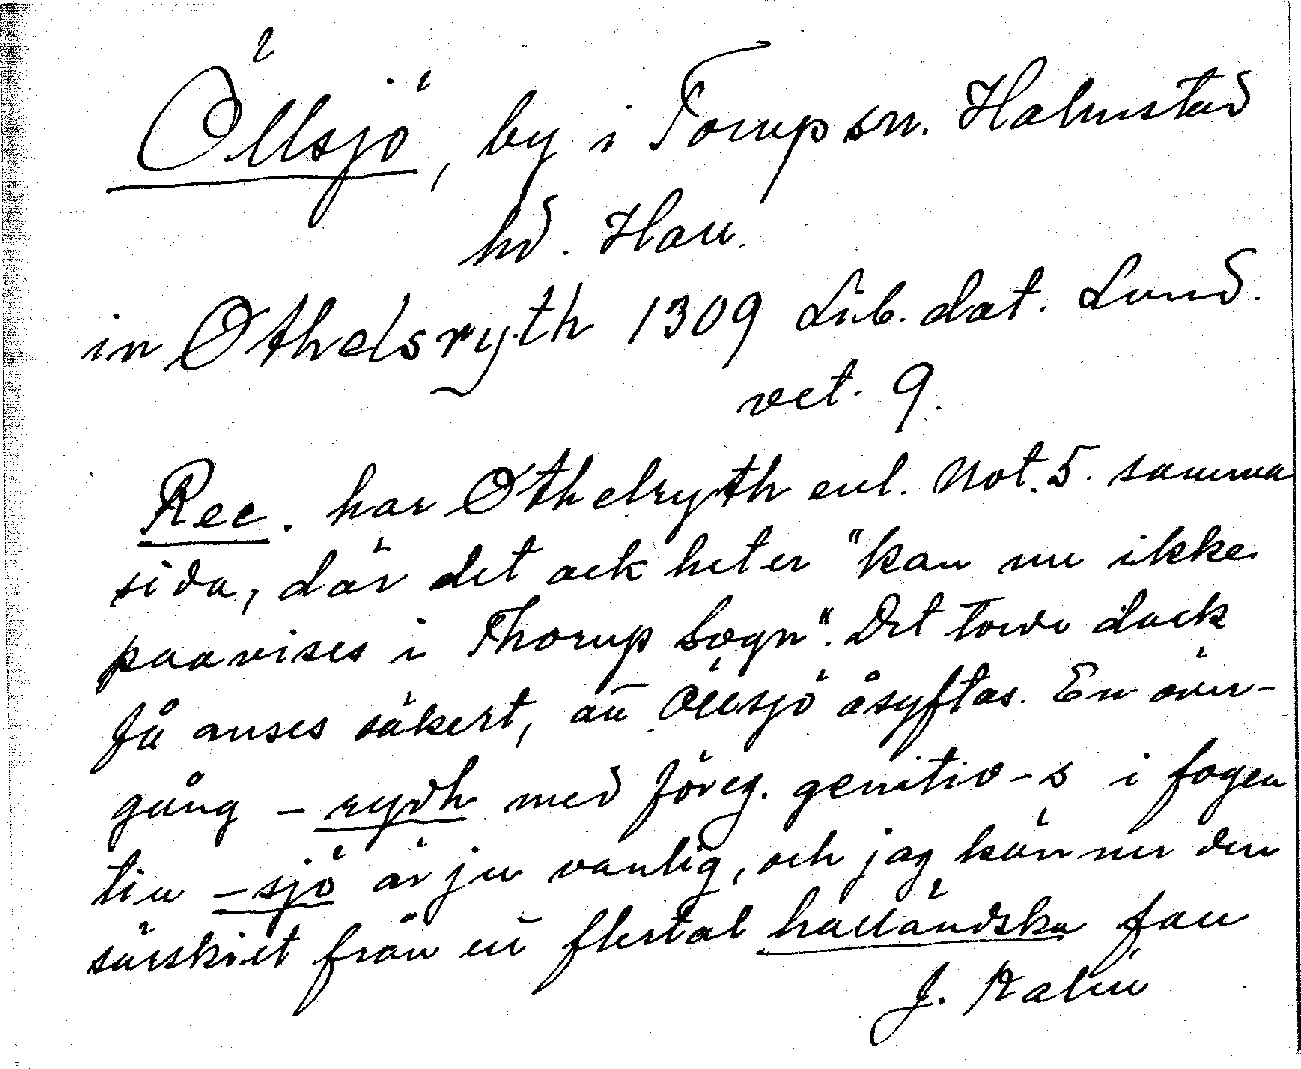 Öllsjö, by i Torup sn. Halmstad
hd. Hall.
in Othelsryth 1309 Lib. dat. Lund.
vet. 9.
Rec. har Othelryth enl. not. 5. samma
sida, där det ock heter "kan nu ikke
paavises i Thorup Sogn". Det torde dock
få anses säkert, att Öllsjö åsyftas. En över-
gång -rydh med föreg. genitiv-s i fogen
till -sjö är ju vanlig, och jag känner den
särskilt från ett flertal halländska fall
J. Kalén